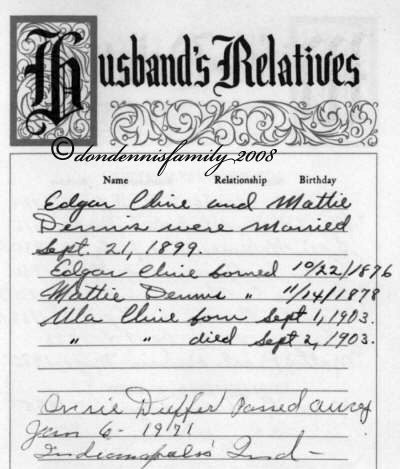 Husband's Relatives
© dondennisfamily 2008
Name Relationship Birthday
Edgar Cline and Mattie
Dennis were Married
Sept. 21, 1899.
Edgar Cline borned 10/22/1876
Mattie Dennis " 11/14/1878
Ula Cline born Sept 1, 1903.
" " died Sept 2, 1903.
Onnie Duffer Passed away
Jan 6 - 1971
Indianapolis Ind -